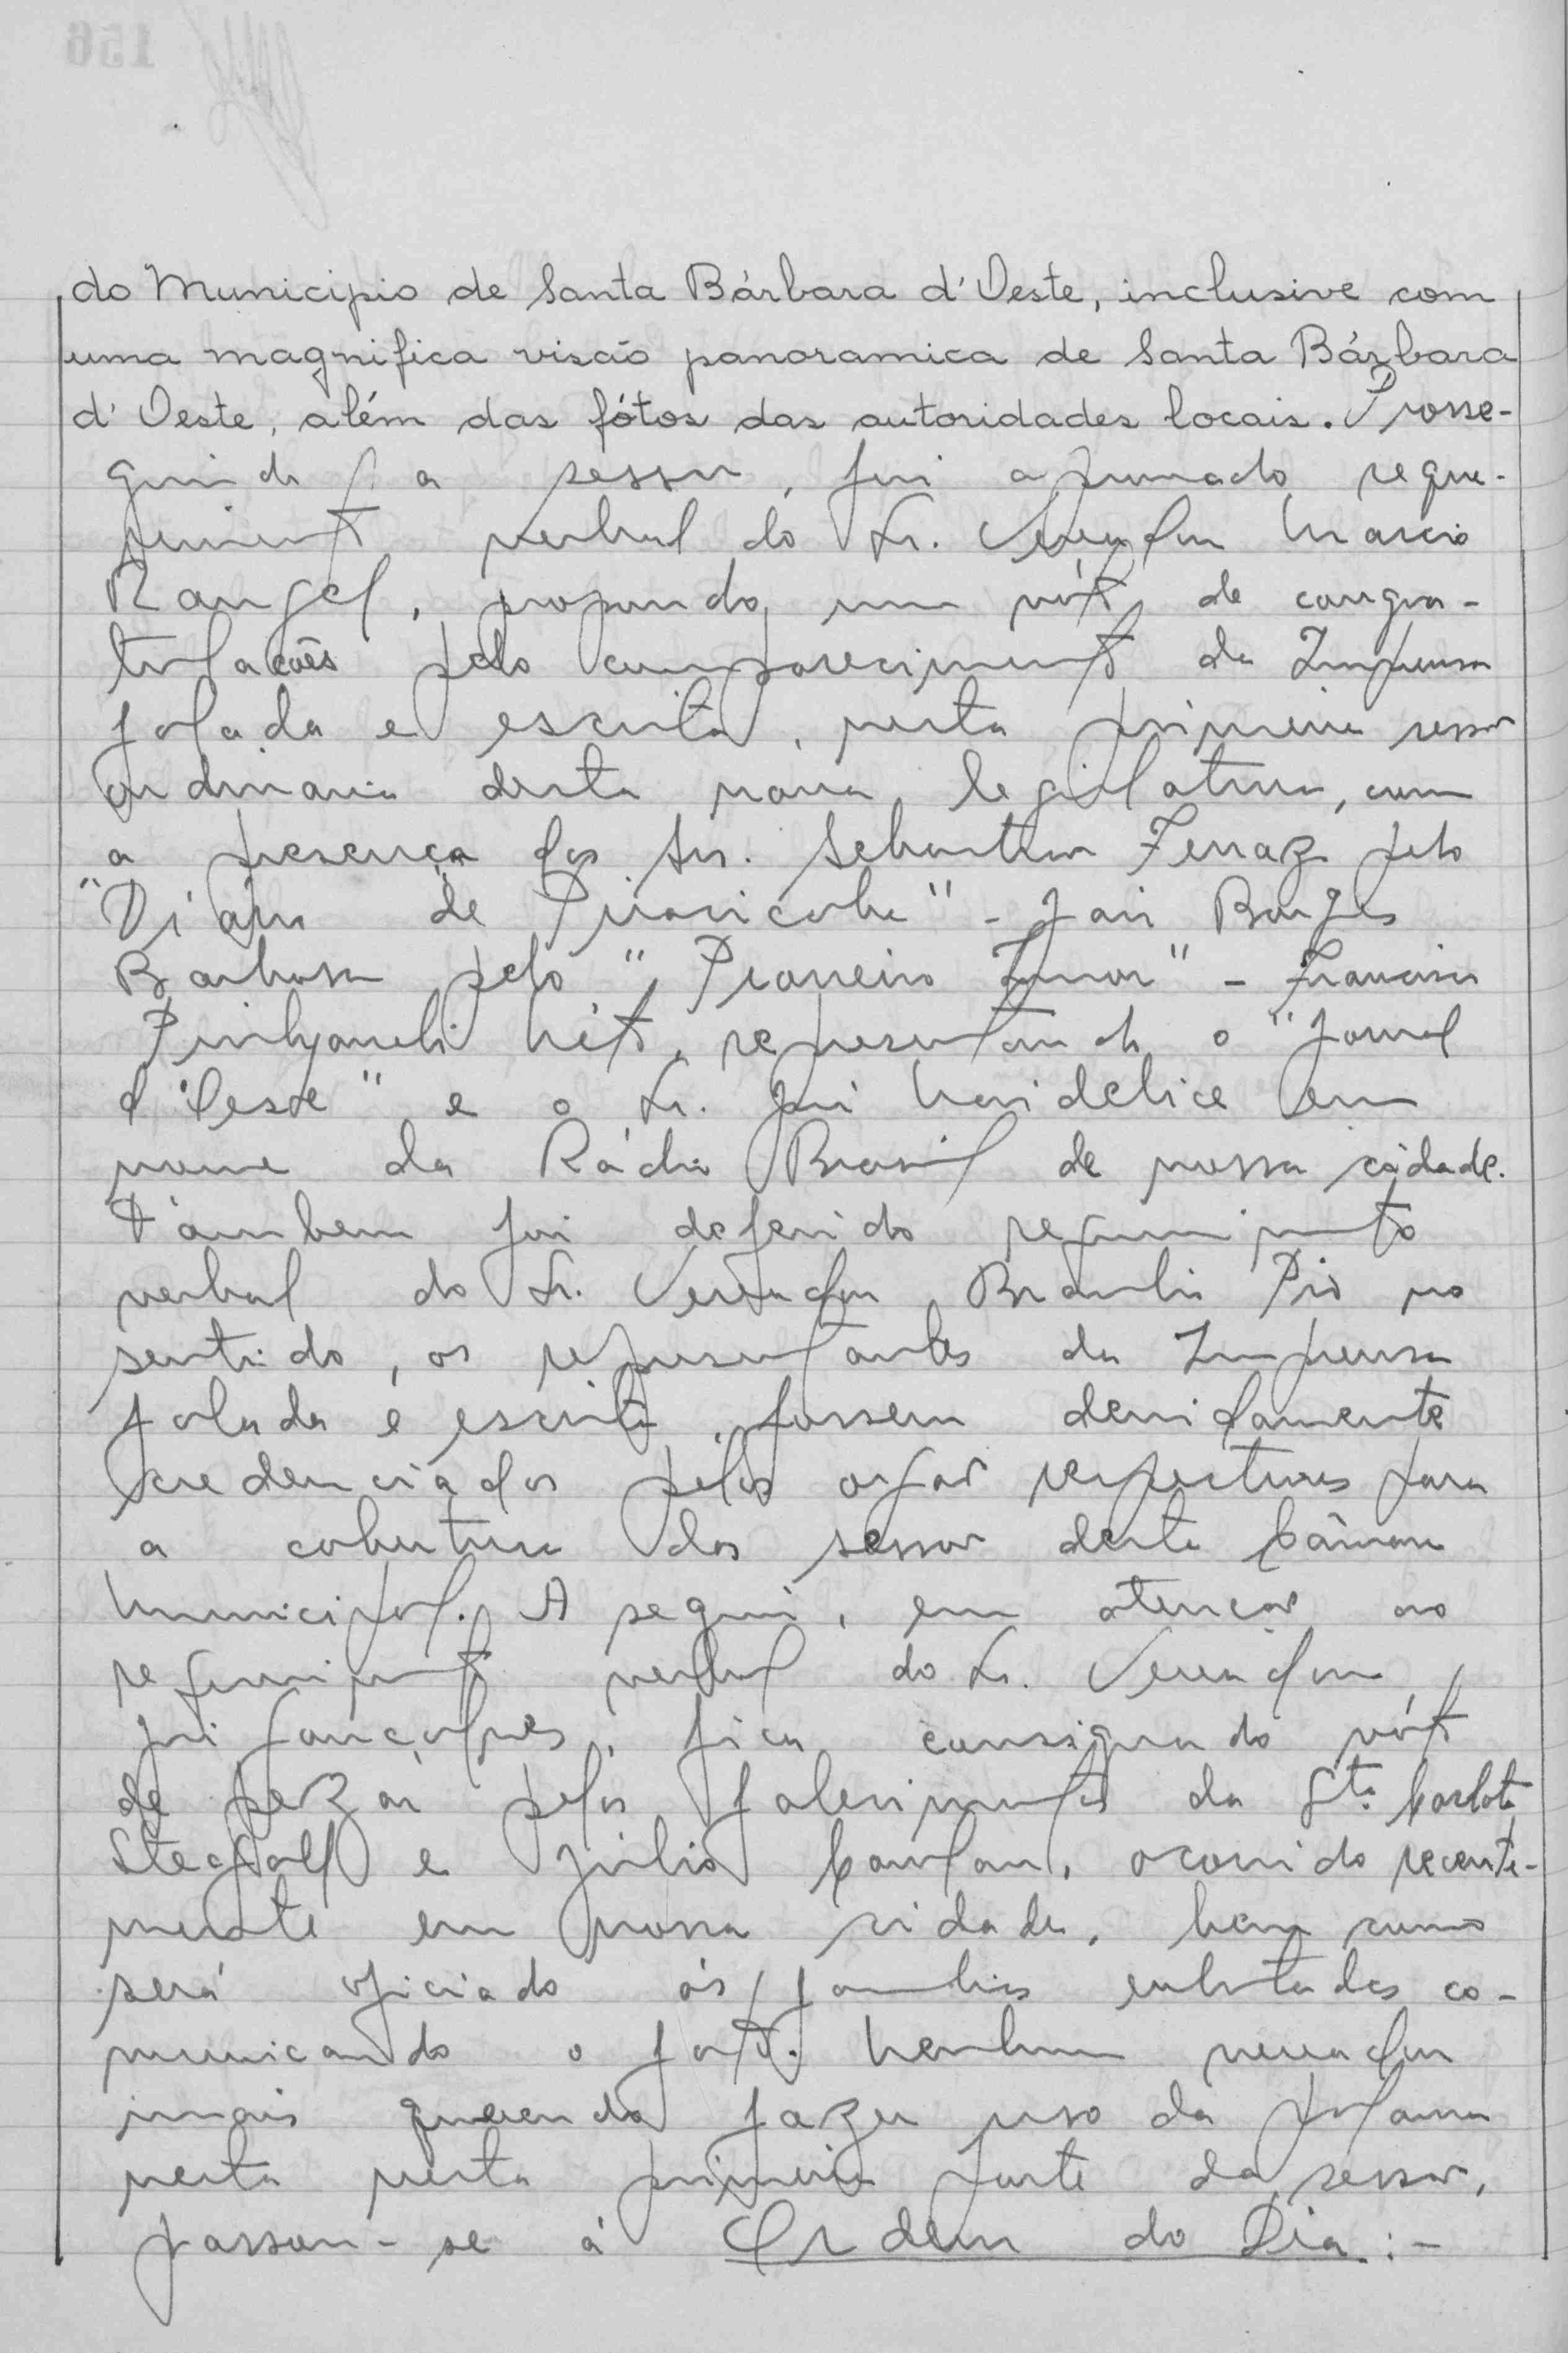 do Municipio de Santa Bárbara d'Oeste, inclusive com
uma magnifica visão panoramica de Santa Bárbara
d'Oeste, além das fótos das autoridades locais. Prosse-
guindo a sessão, foi aprovado reque-
rimento verbal do Sr. Vereador Marcio
Rangel, propondo um vóto de congra-
tulações pelo comparecimento da Imprensa
falada e escrita, nesta primeira sessão
ordinaria desta nova legislatura, com
a presença dos Srs. Sebastião Ferraz pelo
"Diário de Piracicaba" - Jair Borges
Barbosa pelo "Pioneiro" - Francisco
Néto, representando o "Jornal
d'Oeste" e o Sr. José em
nome da Rádio Brasil de nossa cidade.
Tambem foi deferido requerimento
verbal do Sr. Vereador Braulio Pio no
sentido, os representantes da Imprensa
falada e escrita, fossem devidamente
credenciados pelos orgãos respectivos para
a cobertura das sessões desta Câmara
Municipal. A seguir, em atenção ao
requerimento verbal do Sr. Vereador
José Gonçalves, fica consignado vóto
de pezar pelos falecimentos da Sta. Carlota
e Júlio, ocorrido recente-
mente em nossa cidade, bem como
será oficiado ás familias enlutadas co-
municando o fato. Nenhum vereador
mais querendo fazer uso da palavra
nesta nesta primeira parte da sessão,
passou-se á Ordem do Dia:-
156